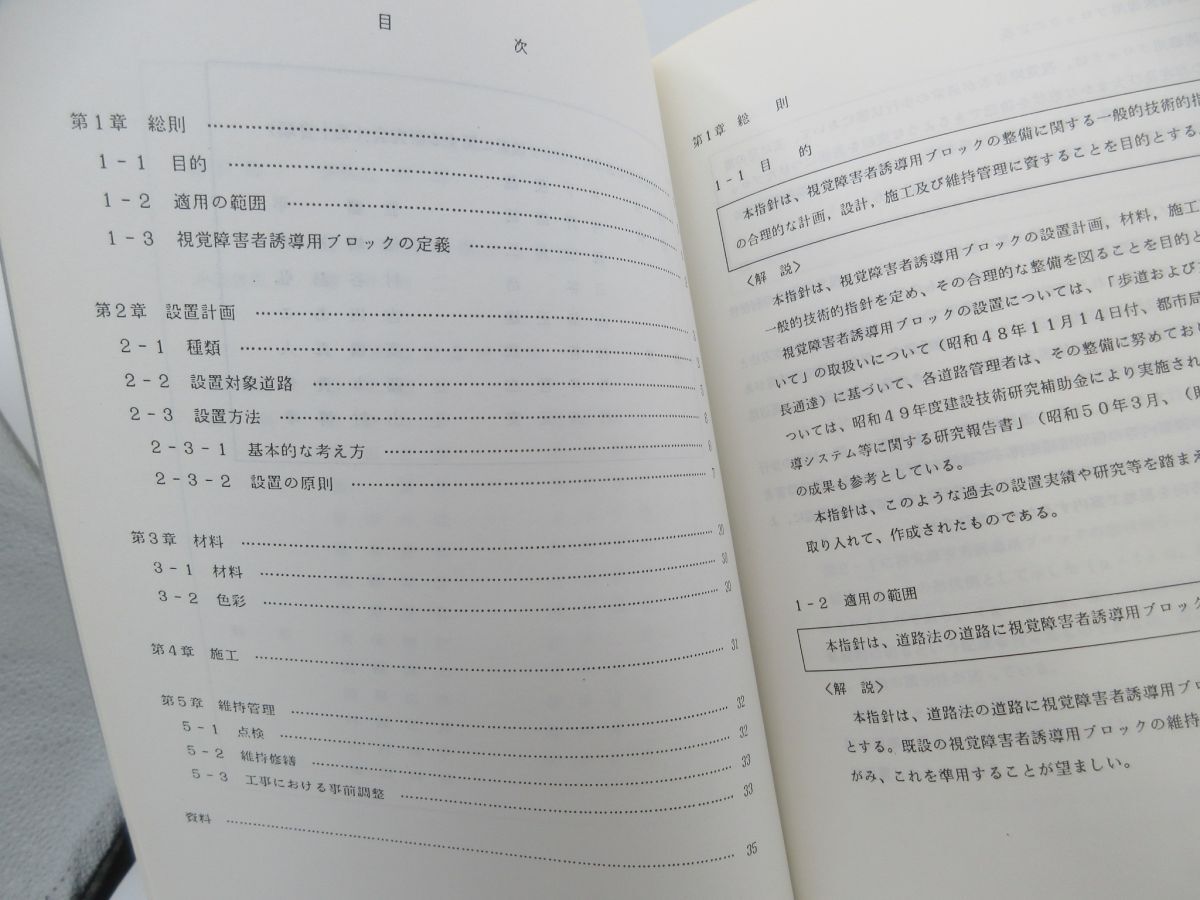 目　次
第1章　総則 ……
1-1　目的 ……
1-2　適用の範囲 ……
1-3　視覚障害者誘導用ブロックの定義 ……
第2章　設置計画 ……
2-1　種類 ……
2-2　設置対象道路 …… 5
2-3　設置方法 …… 6
2-3-1　基本的な考え方 …… 6
2-3-2　設置の原則 …… 7
第3章　材料 ……
3-1　材料 …… 30
3-2　色彩 …… 30
第4章　施工 …… 31
第5章　維持管理 …… 32
5-1　点検 …… 32
5-2　維持修繕 …… 33
5-3　工事における事前調整 …… 33
資料 …… 35
第1章　総　則
1-1　目　的
本指針は、視覚障害者誘導用ブロックの整備に関する一般的技術的指
の合理的な計画，設計，施工及び維持管理に資することを目的とする
〈解　説〉
本指針は、視覚障害者誘導用ブロックの設置計画，材料，施工
一般的技術的指針を定め、その合理的な整備を図ることを目的と
視覚障害者誘導用ブロックの設置については、「歩道および
いて」の取扱いについて（昭和48年11月14日付、都市局
長通達）に基づいて、各道路管理者は、その整備に努めてお
ついては、昭和49年度建設技術研究補助金により実施され
導システム等に関する研究報告書」（昭和50年3月、（財
の成果も参考としている。
本指針は、このような過去の設置実績や研究等を踏まえ
取り入れて、作成されたものである。
1-2　適用の範囲
本指針は、道路法の道路に視覚障害者誘導用ブロック
〈解　説〉
本指針は、道路法の道路に視覚障害者誘導用ブロ
とする。既設の視覚障害者誘導用ブロックの維持
がみ、これを準用することが望ましい。